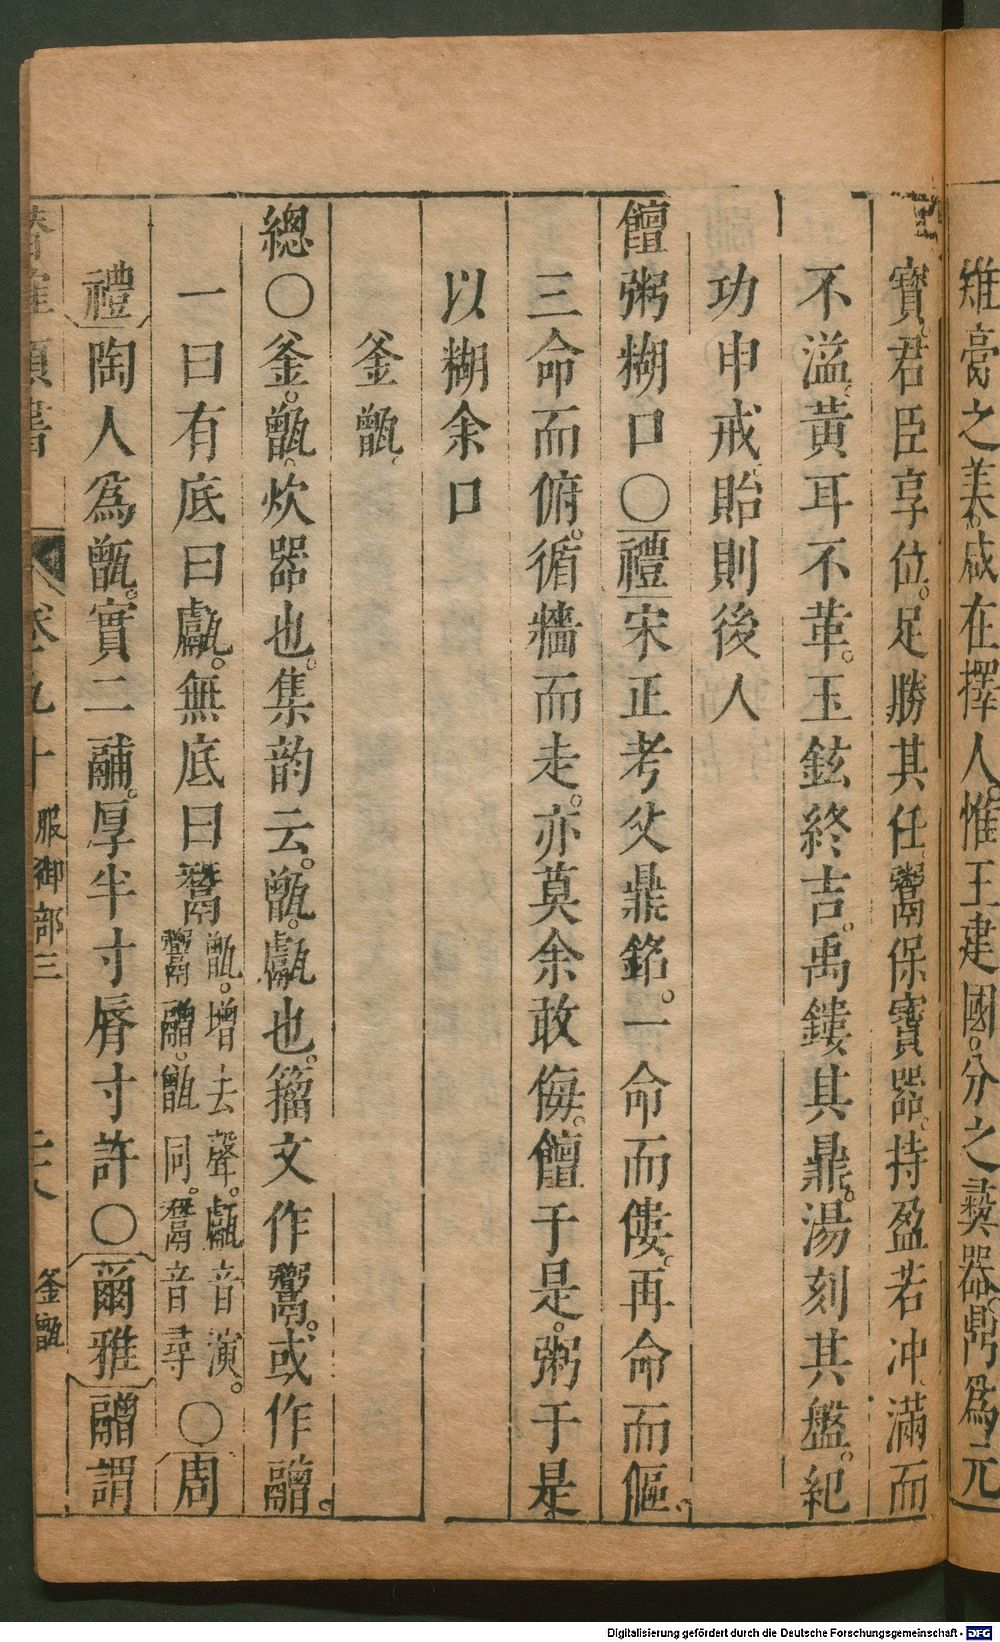 雉膏之美。咸在擇人。惟王建國。分之彝器。鼎爲元
寶。君臣享位。足勝其任。鬻保寶器。持盈若冲。滿而
不溢。黃耳不革。玉鉉終吉。禹鏤其鼎。湯刻其盤。紀
功申戒。貽則後人
饘粥糊口〇禮宋正考父鼎銘。一命而僂。再命而傴。
三命而俯。循牆而走。亦莫余敢侮。饘于是。粥于是
以糊余口
釜甑
總〇釜。甑。炊器也。集韵云。甑。甗也。籀文作鬵。或作䰝。
一曰有底曰甗。無底曰鬵甑。增去聲。甗音演。䰝。甑同。鬵音尋〇周
禮陶人爲甑。實二鬴。厚半寸脣寸許〇爾雅䰝謂
卷之九十 服御部三 釜甑
Digitalisierung gefördert durch die Deutsche Forschungsgemeinschaft - DFG